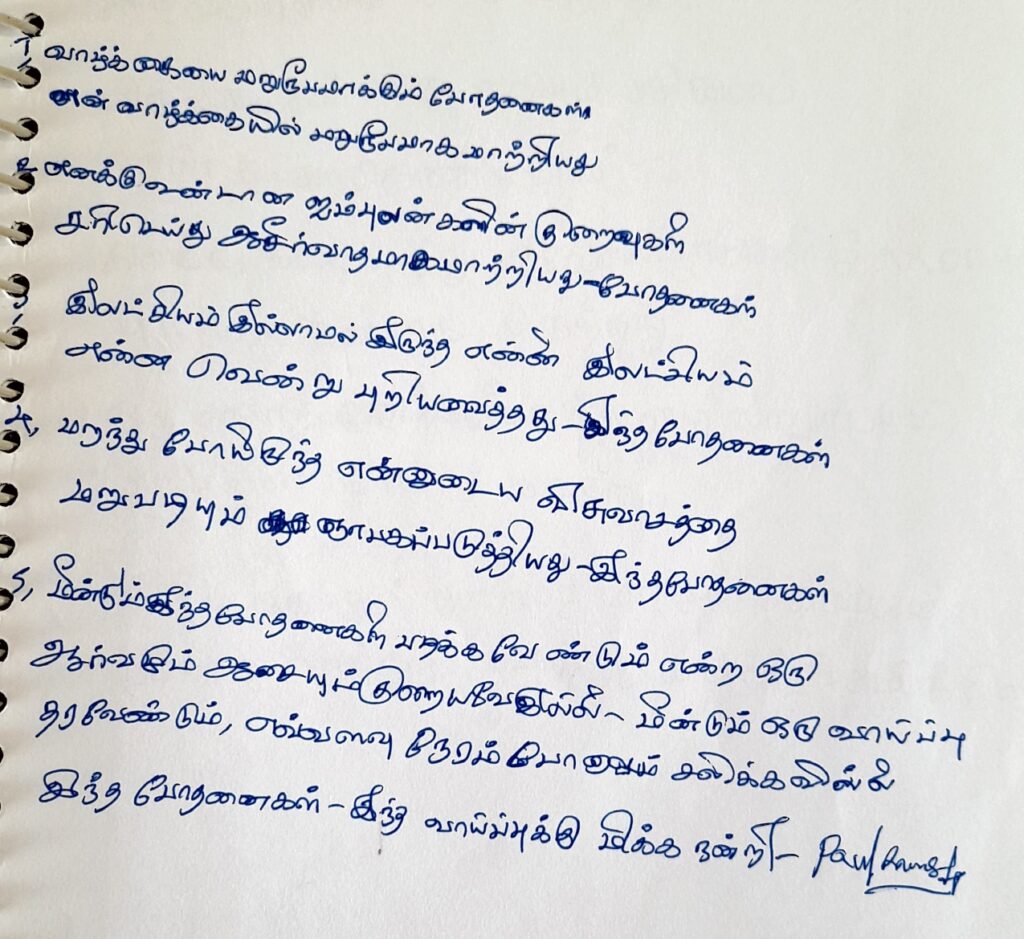 1, வாழ்க்கையை மறுரூபமாக்கும் போதனைகள்
என் வாழ்க்கையில் மறுரூபமாக மாற்றியது
2 எனக்குவுண்டான ஐம்புலன்களின் குறைவுகளை
சரிசெய்து ஆசீர்வாதமாகமாற்றியது - போதனைகள்
3, இலட்சியம் இல்லாமல் இருந்த என்னை இலட்சியம்
என்ன வென்று புரியவைத்தது - இந்த போதனைகள்
4, மறந்து போயிருந்த என்னுடைய விசுவாசத்தை
மறுபடியும் ஞாபகப்படுத்தியது - இந்தபோதனைகள்
5, மீண்டும்இந்தபோதனைகளை படிக்க வேண்டும் என்ற ஒரு
ஆர்வமும் ஆசையும்குறையவேஇல்லை - மீண்டும் ஒரு வாய்ப்பு
தரவேண்டும், எவ்வளவு நேரம் போனாலும் சலிக்கவில்லை
இந்த போதனைகள் - இந்த வாய்ப்புக்கு மிக்க நன்றி - Paul